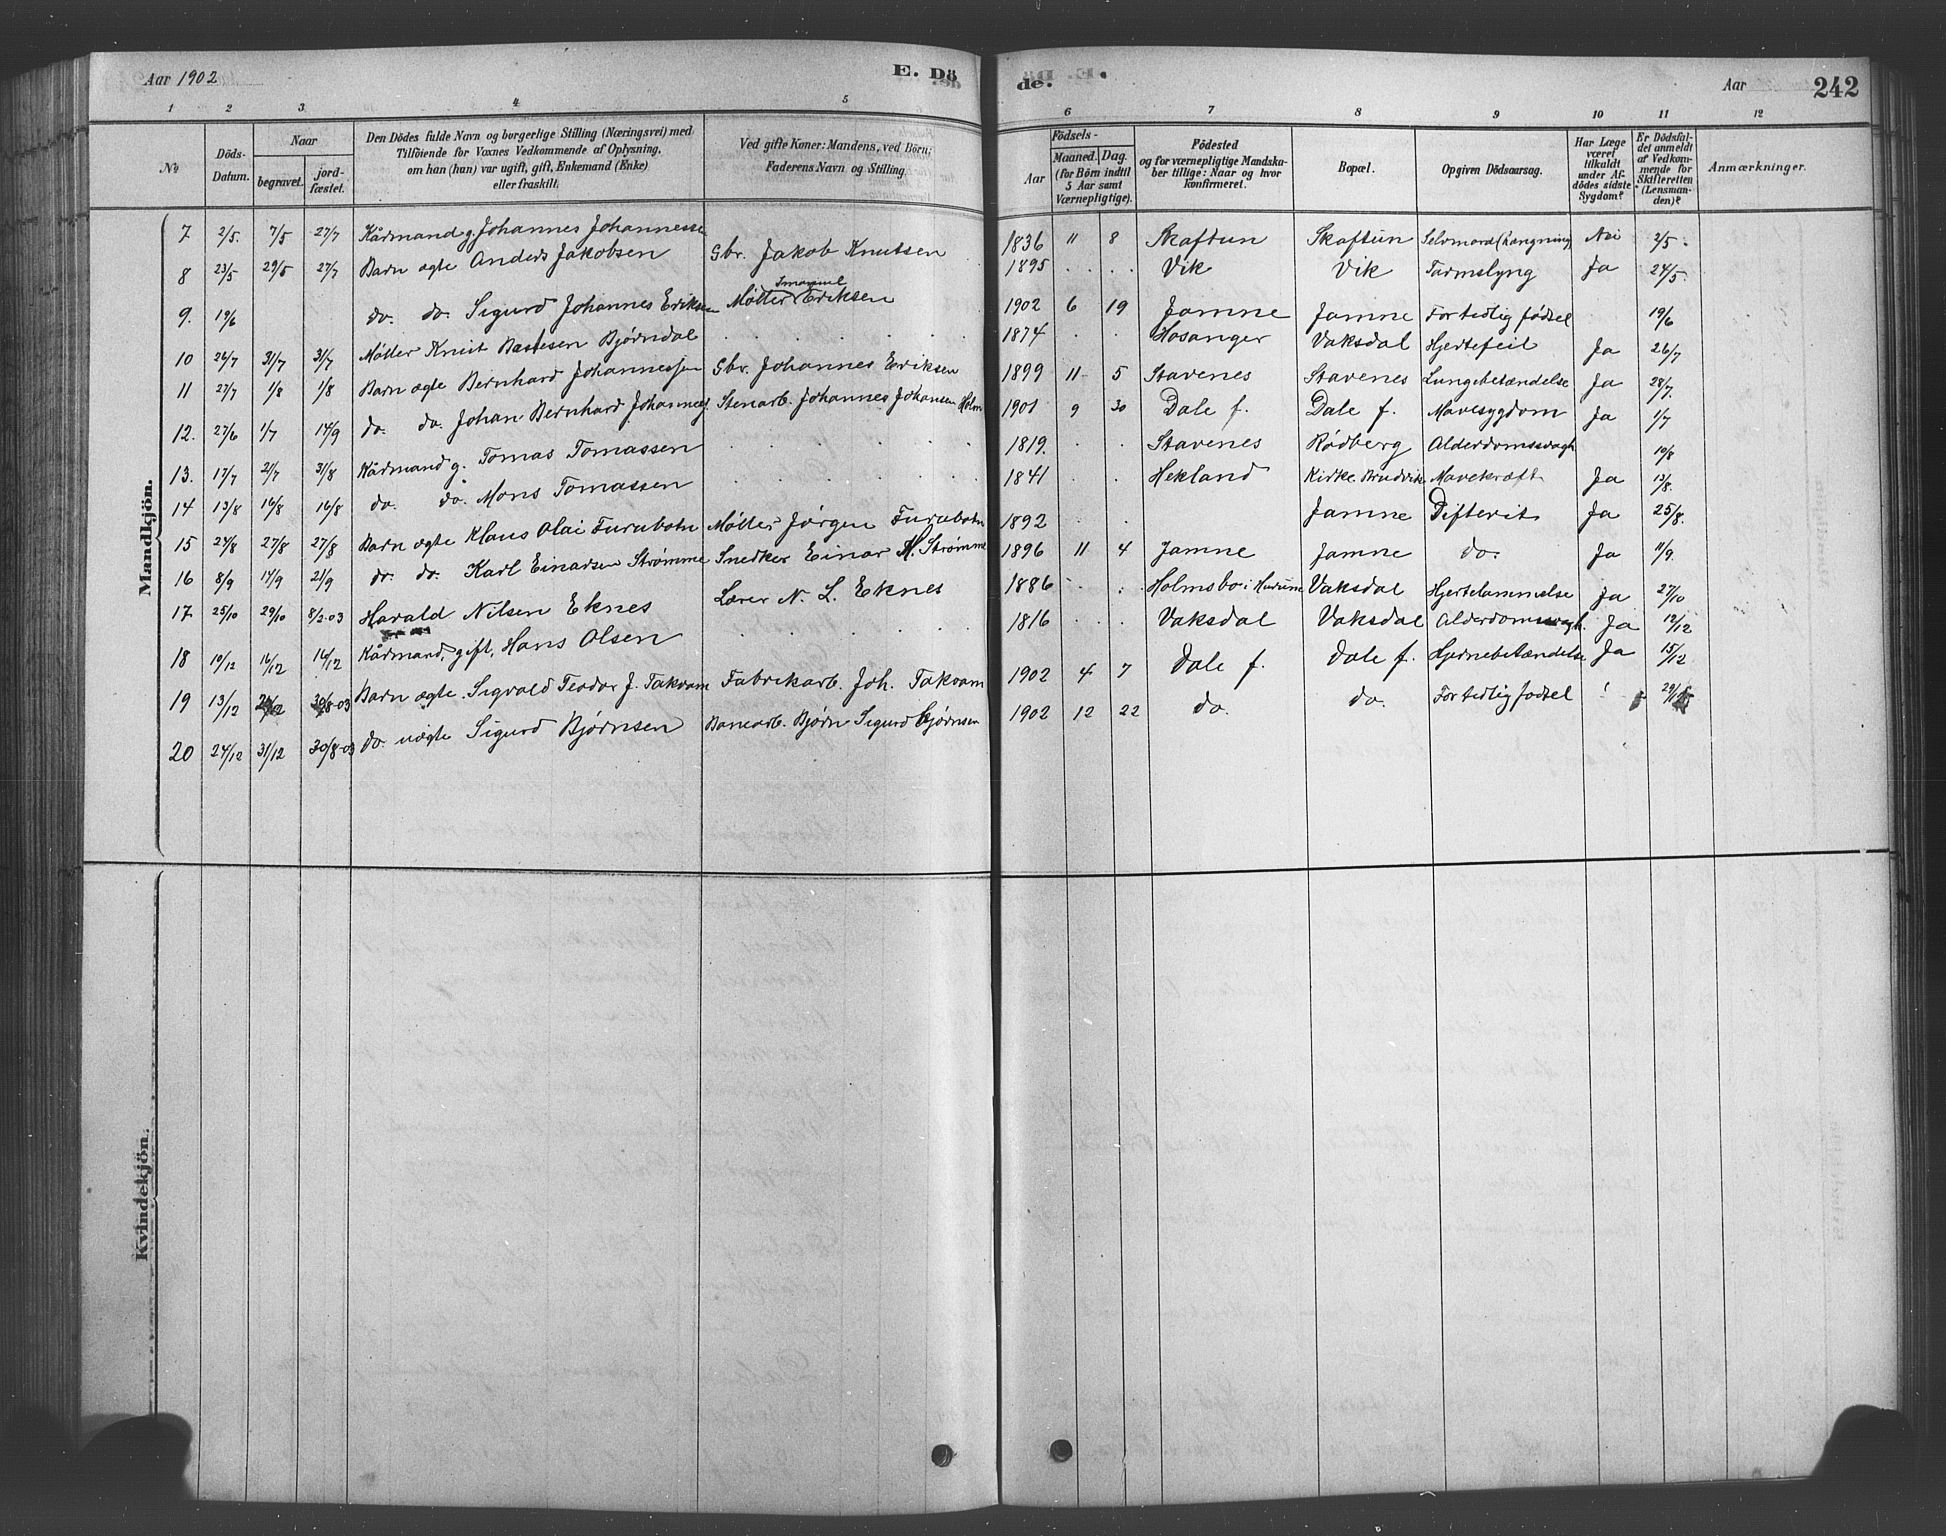 Aar 1902
E. Dö
de.
Aar
242
1 2 3 4 5
6 7 8 9 10 11 12
No
Döds-Datum.
Naar
begravet.
jord-fæstet.
Den Dödes fulde Navn og borgerlige Stilling (Næringsvei) med
Tilföiende for Voxnes Vedkommende af Oplysning,
om han (hun) var ugift, gift, Enkemand (Enke)
eller fraskilt.
Ved gifte Koner: Mandens, ved Börn:
Faderens Navn og Stilling.
Födsels-
Aar
Maaned. Dag.
(for Börn indtil
5 Aar samt
Værnepligtige).
Födested
og for værnepligtige Mandska-
ber tillige: Naar og hvor
konfirmeret.
Bopæl.
Opgiven Dödsaarsag.
Har Læge
været
tilkaldt
under Af-
dödes sidste
Sygdom?
Er Dödsfal-
det anmeldt
af Vedkom-
mende for
Skifteretten
(Lensman-
den)?
Anmærkninger.
Mandkjön.
7 2/5. 7/5 27/7 Kårmand g. Johannes Johannesse 1836 11 8 Skaftun Skaftun Selvmord (hængning) Nei 2/5.
8 23/5 29/5 27/7 Barn ægte Anders Jakobsen Gbr. Jakob Knutsen 1895 Vik Vik Tarmslyng Ja 24/5.
9. 19/6 do. do. Sigurd Johannes Eriksen Møller Imanuel Eriksen 1902 6 19 Jamne Jamne For tidlig fødsel 19/6
10 26/7 31/7 31/7 Møller Knut Bastesen Bjørndal 1874 Hosanger Vaksdal Hjertefeil Ja 26/7
11 27/7 1/8 1/8 Barn ægte Bernhard Johannessen Gbr. Johannes Eriksen 1899 11 5 Stavenes Stavenes Lungebetændelse Ja 28/7.
12. 27/6 1/7 14/9 do. do. Johan Bernhard Johannes. Stenarb. Johannes Johansen Holm 1901 9 30 Dale f. Dale f. Mavesygdom Ja 1/7
13. 17/7 2/7 31/8 Kårmand g. Tomas Tomassen 1819. Stavenes Rødberg Alderdomssvagh 10/8
14 13/8 16/8 16/8 do. do. Mons Tomassen 1841 Hekland Kirke. Bruvik Mavekræft Ja 13/8.
15 24/8 27/8 27/8 Barn ægte Klaus Olai Furubotn Møller Jørgen Furubotn 1892 Jamne Difterit Ja 25/8.
16 8/9 14/9 21/9 do. do. Karl Einarsen Strømme Snedker Einar H. Strømme 1896 11 4 Jamne Jamne do. Ja 11/9.
17. 25/10 29/10 8/2.03 Harald Nilsen Eknes Lærer N. L. Eknes 1886 Holmsbo i Hurum Vaksdal Hjertelammelse Ja 27/10
18 10/12 16/12 16/12 Kårmand, gift, Hans Olsen 1816 Vaksdal Vaksdal Alderdomssvagh. Ja 12/12
19 13/12 30/8.03 Barn ægte. Sigvald Teodor J. Takvam Fabrikarb. Joh. Takvam 1902 4 7 Dale f. Dale f. Hjernebetændelse Ja 15/12
20 24/12 31/12 30/8.03 do. uægte Sigurd Bjørnsen Banearb. Bjørn Sigurd Bjørnsen 1902 12 22 do. do. For tidlig fødsel
Kvindekjön.